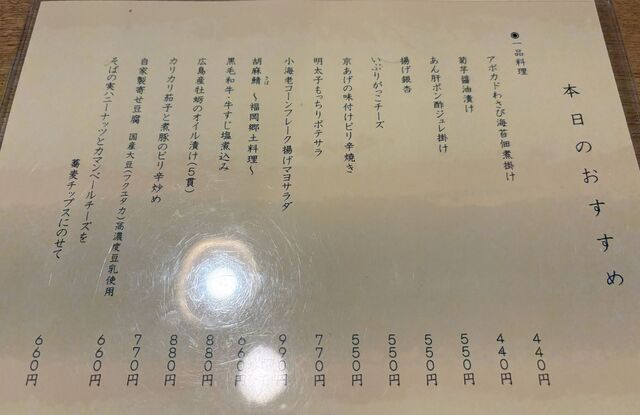 本日のおすすめ
◉一品料理
アボカドわさび海苔佃煮掛け 440円
菊芋醤油漬け 440円
あん肝ポン酢ジュレ掛け 550円
揚げ銀杏 550円
いぶりがっこチーズ 550円
京あげの味付けピリ辛焼き 550円
明太子もっちりポテサラ 770円
小海老コーンフレーク揚げマヨサラダ 990円
胡麻鯖 ～福岡郷土料理～ 660円
さば
黒毛和牛・牛すじ塩煮込み 880円
広島産牡蛎のオイル漬け(5貫) 880円
カリカリ茄子と煮豚のピリ辛炒め 770円
自家製寄せ豆腐 国産大豆(フクユタカ)高濃度豆乳使用 660円
そばの実ハニーナッツとカマンベールチーズを
蕎麦チップスにのせて 660円